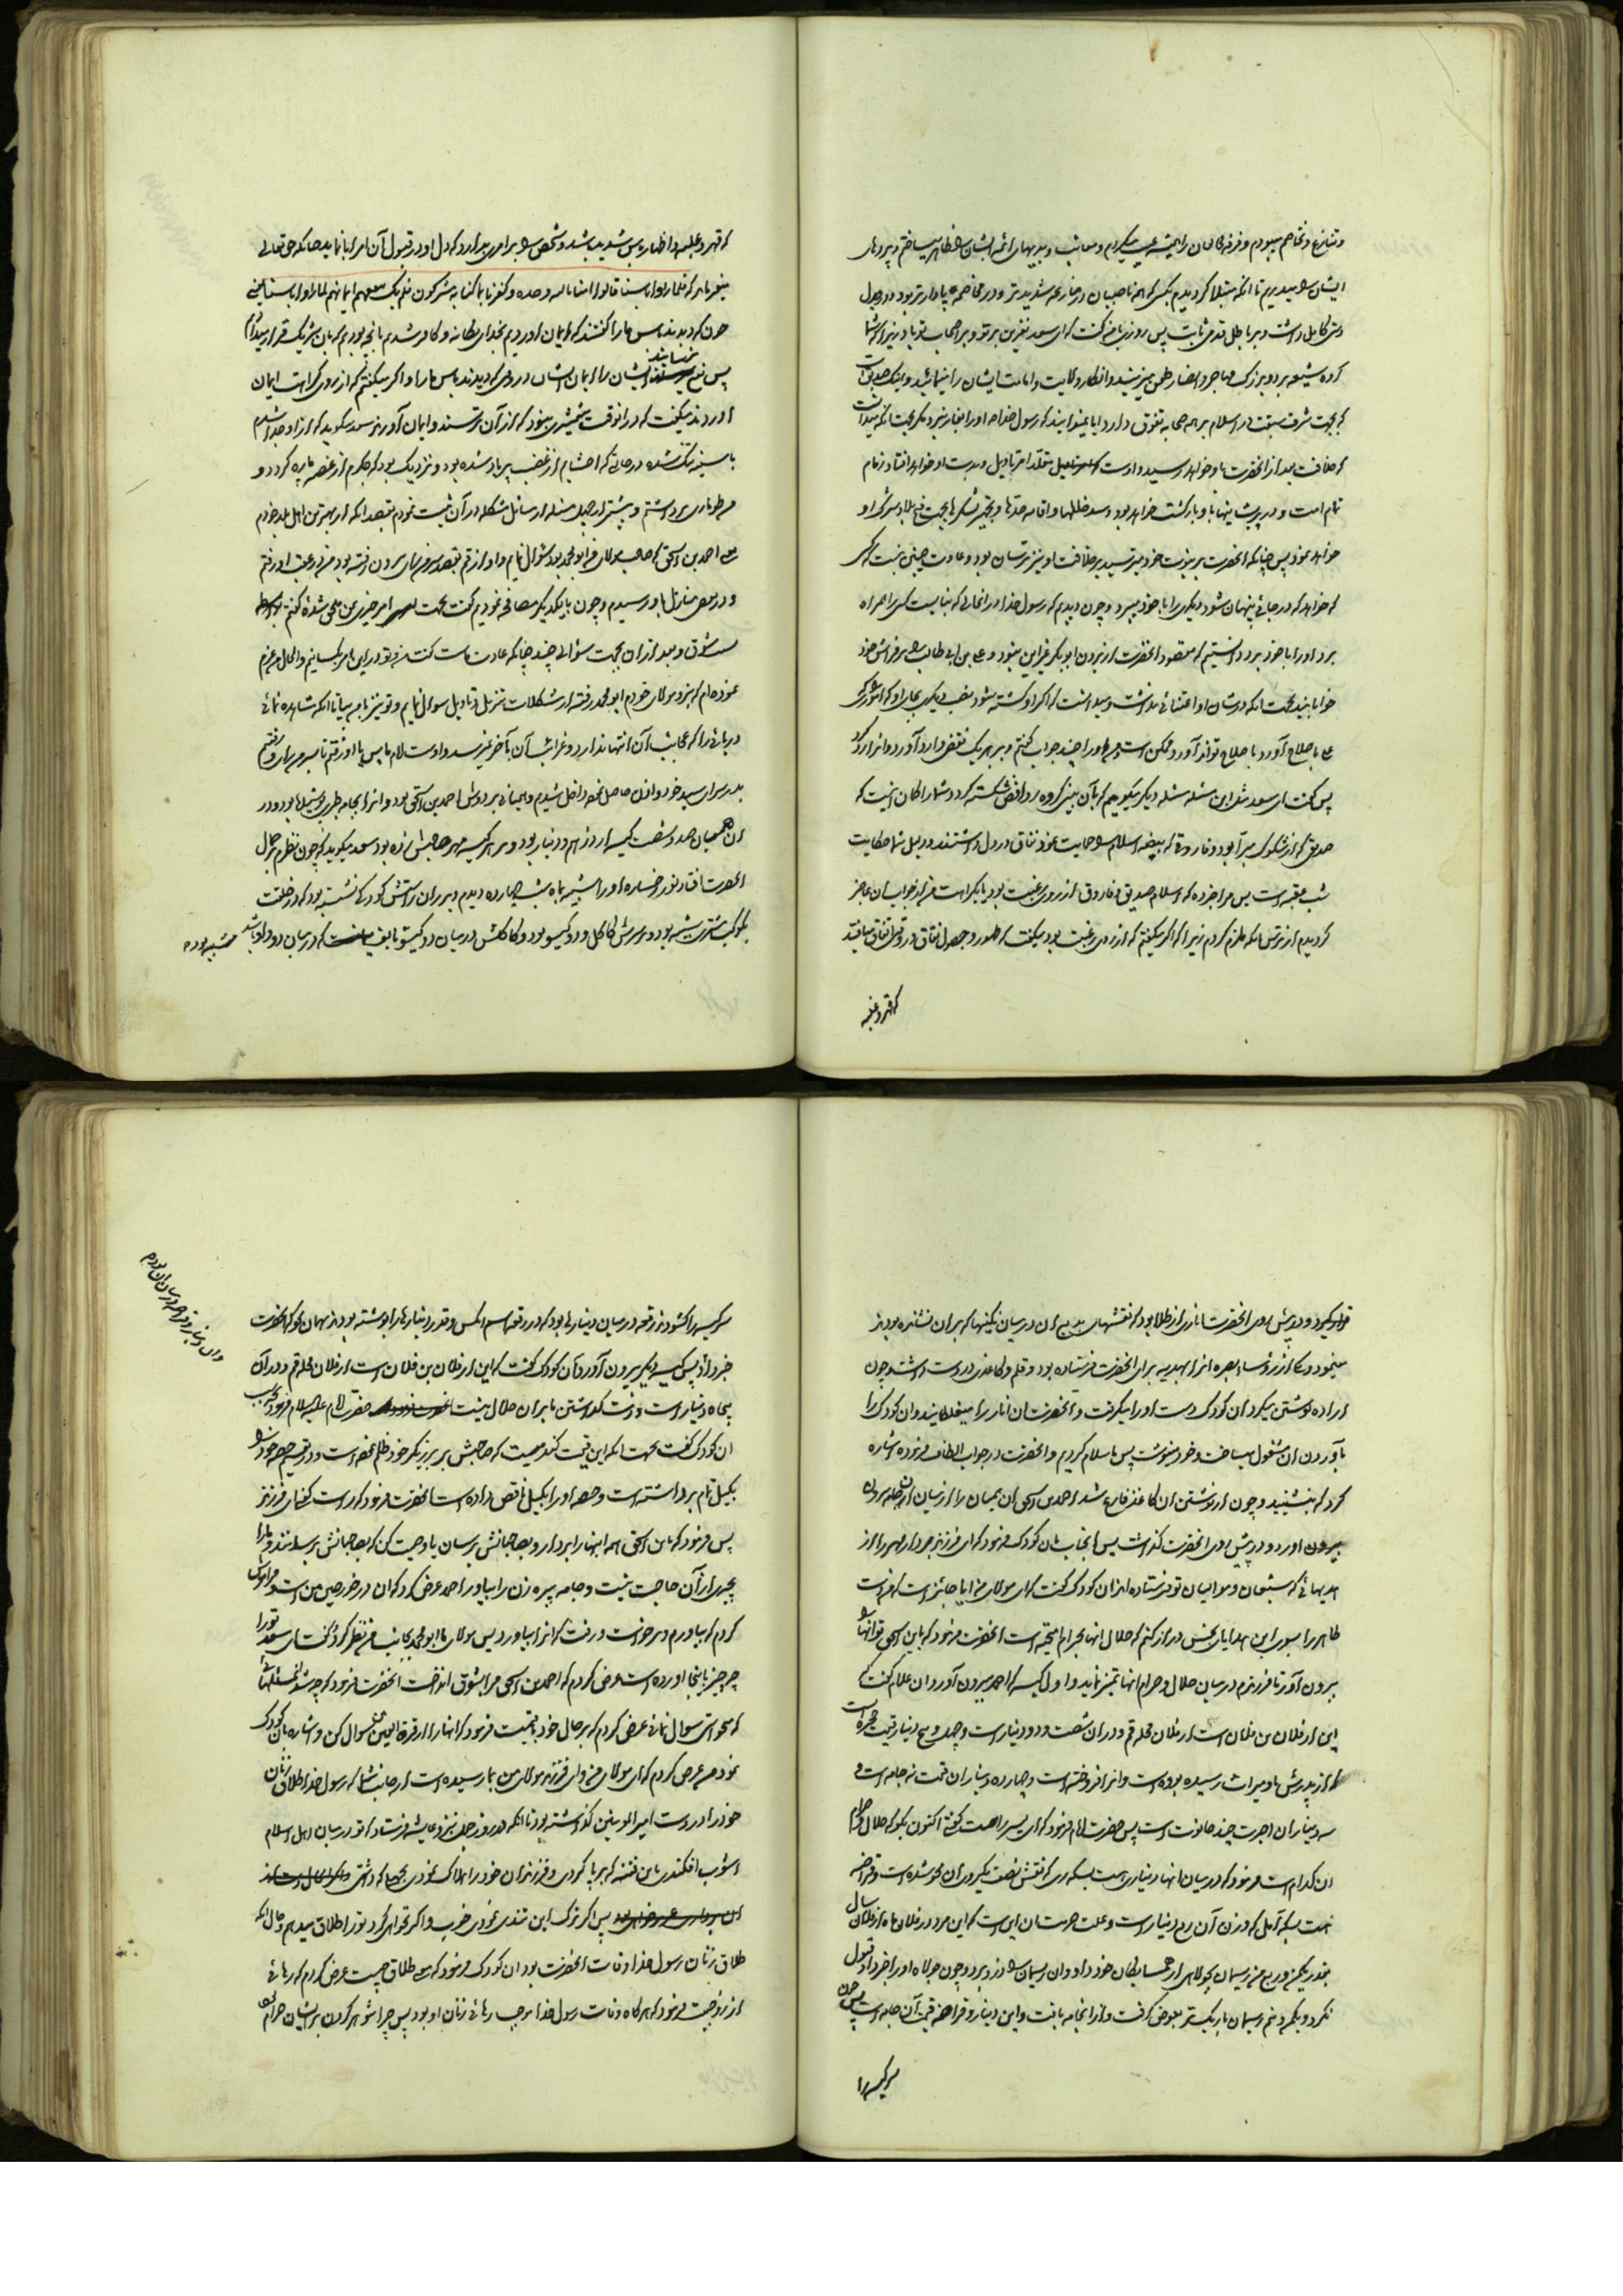 و تنازع و تخاصم میبودم و فرقه مخالفان را همیشه عیب میکردم و معایب و بدیهای ائمه ایشان را ظاهر میساختم و پرده‌های
ایشان را میدریدم تا آنکه مبتلا کردیدم بکسی که از همه ناصبیان در منازعه شدیدتر و در مخاصمه پایدارتر بود و در جدل
دستی کامل داشت و بر باطل قدمی ثابت پس روزی با من کفت که ای سعد نفرین بر تو و بر اصحاب تو باد زیرا که شما
کروه شیعه بر دو بزرک مهاجر و انصار طعن میزنید و انکار ولایت و امامت ایشان را مینمائید و اینک صدیق است
که بجهت شرف سبقت در اسلام بر همه صحابه تفوق دارد ایا نمیدانید که رسول خدا او را بغار نبرد مکر بجهت انکه میدانست
که خلافت بعد از انحضرت باو خواهد رسید و اوست که تقلد امر تاویل و بدست او خواهد افتاد زمام
تمام امت و در پریشانیها باو بازکشت خواهد بود و سد خللها و اقامه حدها و تجهیز لشکرها بجهت فتح بلاد شرک او
خواهد نمود پس چنانکه انحضرت بر نبوت خود میترسید بر خلافت او نیز ترسان بود و عادت چنین نیست که کسی
که خواهد که در جائی پنهان شود دیکری را با خود ببرد و چون دیدیم که رسول خدا در انحالی که بنایست کسی را همراه
برد او را با خود برد دانستیم که مقصود انحضرت از بردن ابو بکر غیر این نبود و علی بن ابی طالب را بر فراش خود
خوابانید بجهت انکه در شان او اعتنائی نداشت و میدانست که اگر او کشته شود نصب دیگری بجای او که امور
علی باصلاح آورد باصلاح تواند آورد ممکن است و من او را چند جواب کفتم و بر هر یک نقضی وارد آورد و انرا رد کرد
پس کفت ای سعد مثل این مسئله مسئله دیکر میکویم که بآن بینی کروه روافض شکسته کردد شما را کمان اینست که
صدیق که از شکوک مبرا بود و فاروق که بیضه اسلام را حمایت نمود نفاق در دل داشتند و دلیل شما حکایت
شب عقبه است پس مرا خبر ده که اسلام صدیق و فاروق از روی رغبت بود یا بکراهت من از جواب ان عاجز
کردیدم از ترس انکه ملزم کردم زیرا که اگر میکفتم که از روی رغبت بود میکفت که ظهور و حصول نفاق در وقتی اتفاق میافتد
که قهر و غلبه
که قهر و غلبه و اظهار باس شدید باشد و شخص را بر امری بدارد که دل او در قبول آن امر ابا نماید چنانکه حق تعالی
میفرماید که فلما راوا باسنا قالوا امنا بالله وحده و کفرنا بما کنا به مشرکین فلم یک ینفعهم ایمانهم لما راوا باسنا یعنی
چون که دیدند باس ما را کفتند که ایمان اوردیم بخدای یکانه و کافر شدیم بانچه بودیم که بان شریک قرار میدادیم
پس نفع نبخشد ایشان را ایمان ایشان در وقتی که دیدند باس ما را و اکر میکفتم که از روی کراهت ایمان
اوردند میکفت که در انوقت شمشیری نبود که از آن ترسند و ایمان آورند سعد میکوید که از او جدا شدم
با سینه تنک شده در حالتی که احشایم از غضب پر باد شده بود و نزدیک بود که جکرم از غصه پاره کردد و
من طوماری برداشتم و بیشتر از چهل مسئله از مسائل مشکله در آن ثبت نمودم بقصد انکه از بهترین اهل بلد خودم
احمد بن اسحق که صاحب مولای من ابو محمد بود سئوال نمایم و او از قم بقصد سر من رای بیرون رفته بود من در عقب او رفتم
و در بعض منازل باو رسیدم و چون با یکدیکر مصافحه نمودیم کفت بجهت امر خیری بمن ملحق شدهٔ کفتم
شوق و بعد از ان بجهت سئوالی چند چنانکه عادت ماست کفت من و تو در این امر یکسانیم و الحال من عزم
نموده‌ام که نزد مولای خودم ابو محمد رفته از مشکلات تنزیل و تاویل سوال نمایم و تو نیز با من بیا تا انکه مشاهده نمائی
دریائی را که عجایب آن انتها ندارد و غرایب آن بآخر نمیرسد و اوست امام ما پس با او رفتم تا بسر من رای رفتیم
بدر سرای سید خود و اذن حاصل نموده داخل شدیم و همیانی بر دوش احمد بن اسحق بود و انرا بجامه طبری پوشیده بود و در
ان همیان صد و شصت کیسه از درهم و دینار بود و بر هر کیسه مهر صاحبش زده بود سعد میکوید که چون نظرم بر جمال
انحضرت افتاد نور رخساره او را شبیه بماه شب چهارده دیدم و بر ران راستش کودکی نشسته بود که در خلقت
بکوکب مشتری شبیه بود و بر سرش کاکل و دو کیسو بود و کاکلش در میان دو کیسو مانند الفی که در میان دو واو باشد مشتبه بود
قرار میکرد و در پیش روی انحضرت اناری از طلا بود که نقشهای بدیع ان در میان نکینها که بر ان نشانده بودند
مینمود و یکی از رؤساء بصره انرا بهدیه برای انحضرت فرستاده بود و قلم و کاغذی در دست داشت و چون
اراده نوشتن میکرد ان کودک دست او را میکرفت و انحضرت ان انار را میغلطانید و ان کودک را
بآوردن ان مشغول میساخت و خود مینوشت پس ما سلام کردیم و انحضرت در جواب الطاف فرموده اشاره
کرد که بنشینید و چون از نوشتن ان کاغذ فارغ شد احمد بن اسحق ان همیان را از میان ان جامه
بیرون اورد و در پیش روی انحضرت کذاشت پس بجانب ان کودک فرمود که ای فرزند بردار مهر را از
هدیهائی که شیعیان و موالیان تو فرستاده‌اند ان کودک کفت که ای مولای من ایا جایز است که دست
طاهر را بسوی این هدایای نجس دراز کنم که حلال انها بحرام امیخته است انحضرت فرمود که یابن اسحق تو انها را
بیرون آور تا فرزندم در میان حلال و حرام انها تمیز نماید و اول کیسه که احمد بیرون آورد ان غلام کفت که
این از فلان بن فلان است از فلان محله قم و در ان شصت و دو دینار است چهل و پنج دینار قیمت حجره است
که از پدرش باو میراث رسیده بوده است و انرا فروخته است و چهارده دینار ان قیمت نه جامه است و
سه دینار ان اجرت چند حانوت است پس حضرت امام فرمود که ای پسر راست کفتی اکنون بکو که حلال و حرام
ان کدام است فرمود که در میان انها دیناری هست بسکه ری که نقش نصف یکروی ان محو شده است و قراضه
هست بسکه آمل که وزن آن ربع دینار است و علت حرمتشان این است که این مرد در فلان ماه از فلان سال
بقدر یکمن و ربع من ریسمان بجولاهی از همسایکان خود داد و ان ریسمان را دزد برد و چون جولاه او را خبر داد قبول
نکرد و یکمن و نیم ریسمان باریکتر بعوض کرفت و از انجامه بافت و این دینار و قراضه قیمت آن جامه است پس چون
سر کیسه را
سر کیسه را کشودند رقعه در میان دینارها بود که در رقعه اسم انکس و قدر دینارها را نوشته بودند بهمان نحو که انحضرت
خبر داد پس کیسه دیکر بیرون آورد و آن کودک کفت که این از فلان بن فلان است از فلان محله قم و در آن
پنجاه دینار است و دست کذاشتن ما بر ان حلال نیست حضرت امام علیه السلام فرمود بچه سبب
ان کودک کفت بجهت انکه این قیمت کندمیست که صاحبش بر برزیکر خود ظلم نموده است و در تقسیم حصه خود را
بکیل تمام برداشته است و حصه او را بکیل ناقص داده است انحضرت فرمود که راست کفتی ای فرزند
پس فرمود که یابن اسحق همه اینها را بردار و بصاحبانش برسان یا وصیت کن که بصاحبانش برسانند و ما را
بچیزی از آن حاجت نیست و جامه پیره زن را بیاور احمد عرض کرد که ان در خورجین من است و فراموش
کردم که بیاورم و برخواست و رفت که انرا بیاورد پس مولای ما ابو محمد بجانب من نظر کرد و کفت ای سعد تو را
چه چیز باینجا اورده است عرض کردم که احمد بن اسحق مرا بشوق انداخت انحضرت فرمود که چه شد ان مسئلهائی
که میخواستی سوال نمائی عرض کردم که بر حال خود باقیست فرمود که انها را از قرة العین من سوال کن و اشاره بان کودک
نمود من عرض کردم که ای مولای من و ای فرزند مولای من بما رسیده است از جانب شما که رسول خدا طلاق زنان
خود را در دست امیر المومنین کذاشته بود تا انکه در روز جمل نزد عایشه فرستاد که تو در میان اهل اسلام
اشوب افکندی باین فتنه که برپا کردی و فرزندان خود را هلاک نمودی بجهل که داشتی
پس اکر ترک این تندی نمودی خوب و اکر نخواهی کرد تو را طلاق میدهم و حال انکه
طلاق زنان رسول خدا وفات انحضرت بود ان کودک فرمود که معنی طلاق چیست عرض کردم که رهائی
از زوجیت فرمود که هر کاه وفات رسول خدا موجب رهائی زنان او بود پس چرا شوهر کردن بر ایشان حرام